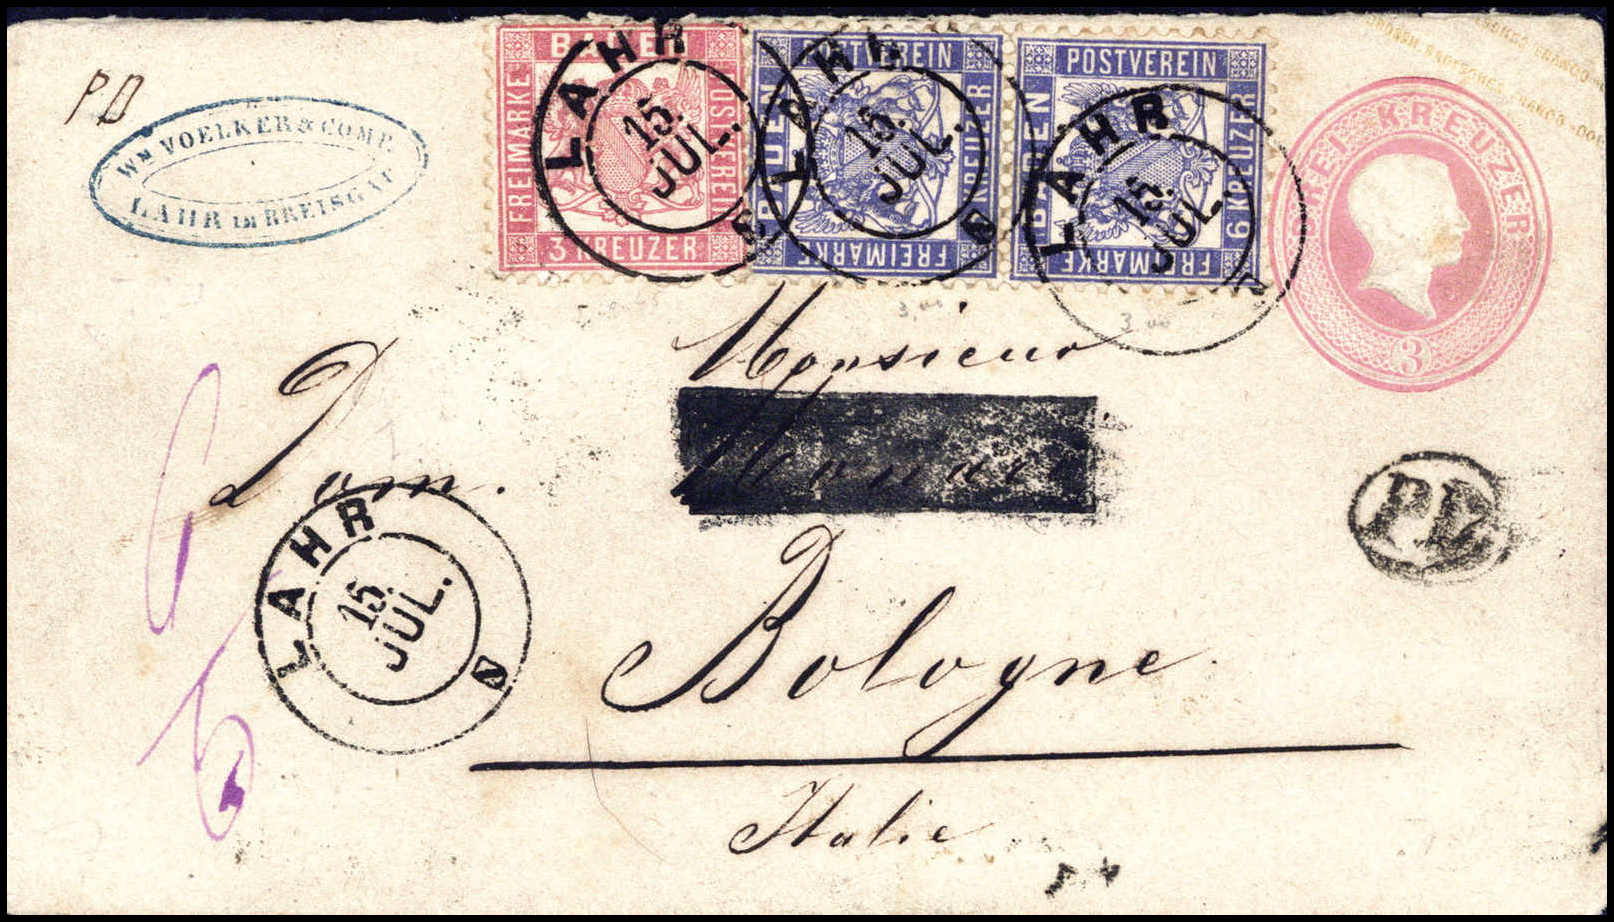 PD
WM VOELKER & COMP.
LAHR IM BREISGAU
BADEN
FREIMARKE
POSTVEREIN
3 KREUZER
LAHR
15.
JUL.
POSTVEREIN
BADEN
6 KREUZER
FREIMARKE
LAHR
15.
JUL.
POSTVEREIN
BADEN
6 KREUZER
FREIMARKE
LAHR
15.
JUL.
DREI KREUZER
3
Monsieur
Dom.
Bologne.
Italie
LAHR
15.
JUL.
PD
3,00
3 00